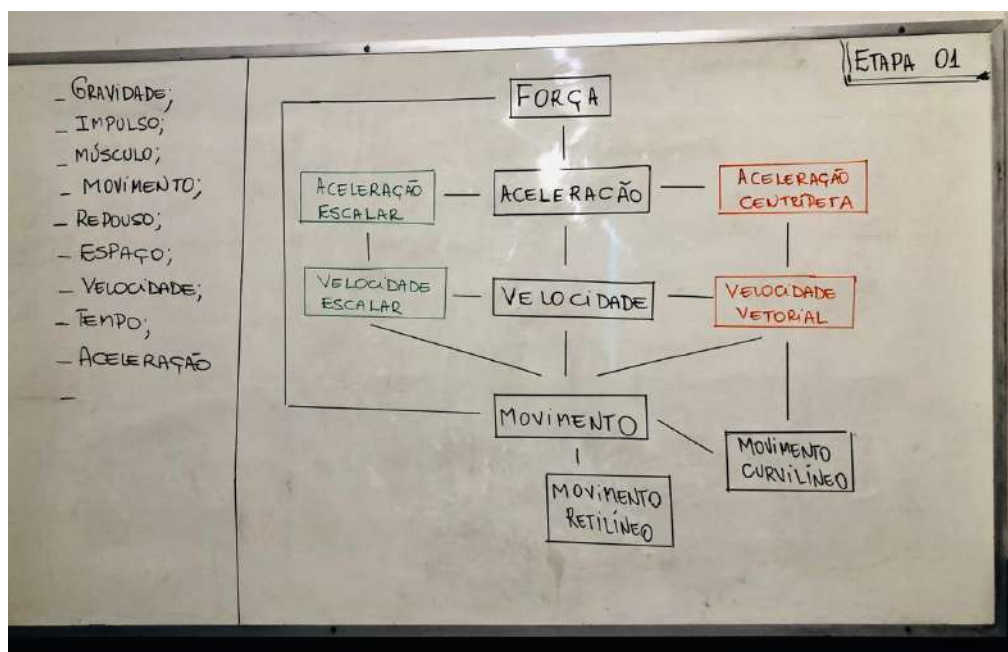 ETAPA 01
_ GRAVIDADE;
_ IMPULSO;
_ MÚSCULO;
_ MOVIMENTO;
_ REPOUSO;
_ ESPAÇO;
_ VELOCIDADE;
_ TEMPO;
_ ACELERAÇÃO
_
FORÇA
ACELERAÇÃO
ESCALAR
ACELERACÃO
ACELERAÇÃO
CENTRÍPETA
VELOCIDADE
ESCALAR
VELOCIDADE
VELOCIDADE
VETORIAL
MOVIMENTO
MOVIMENTO
CURVILÍNEO
MOVIMENTO
RETILÍNEO